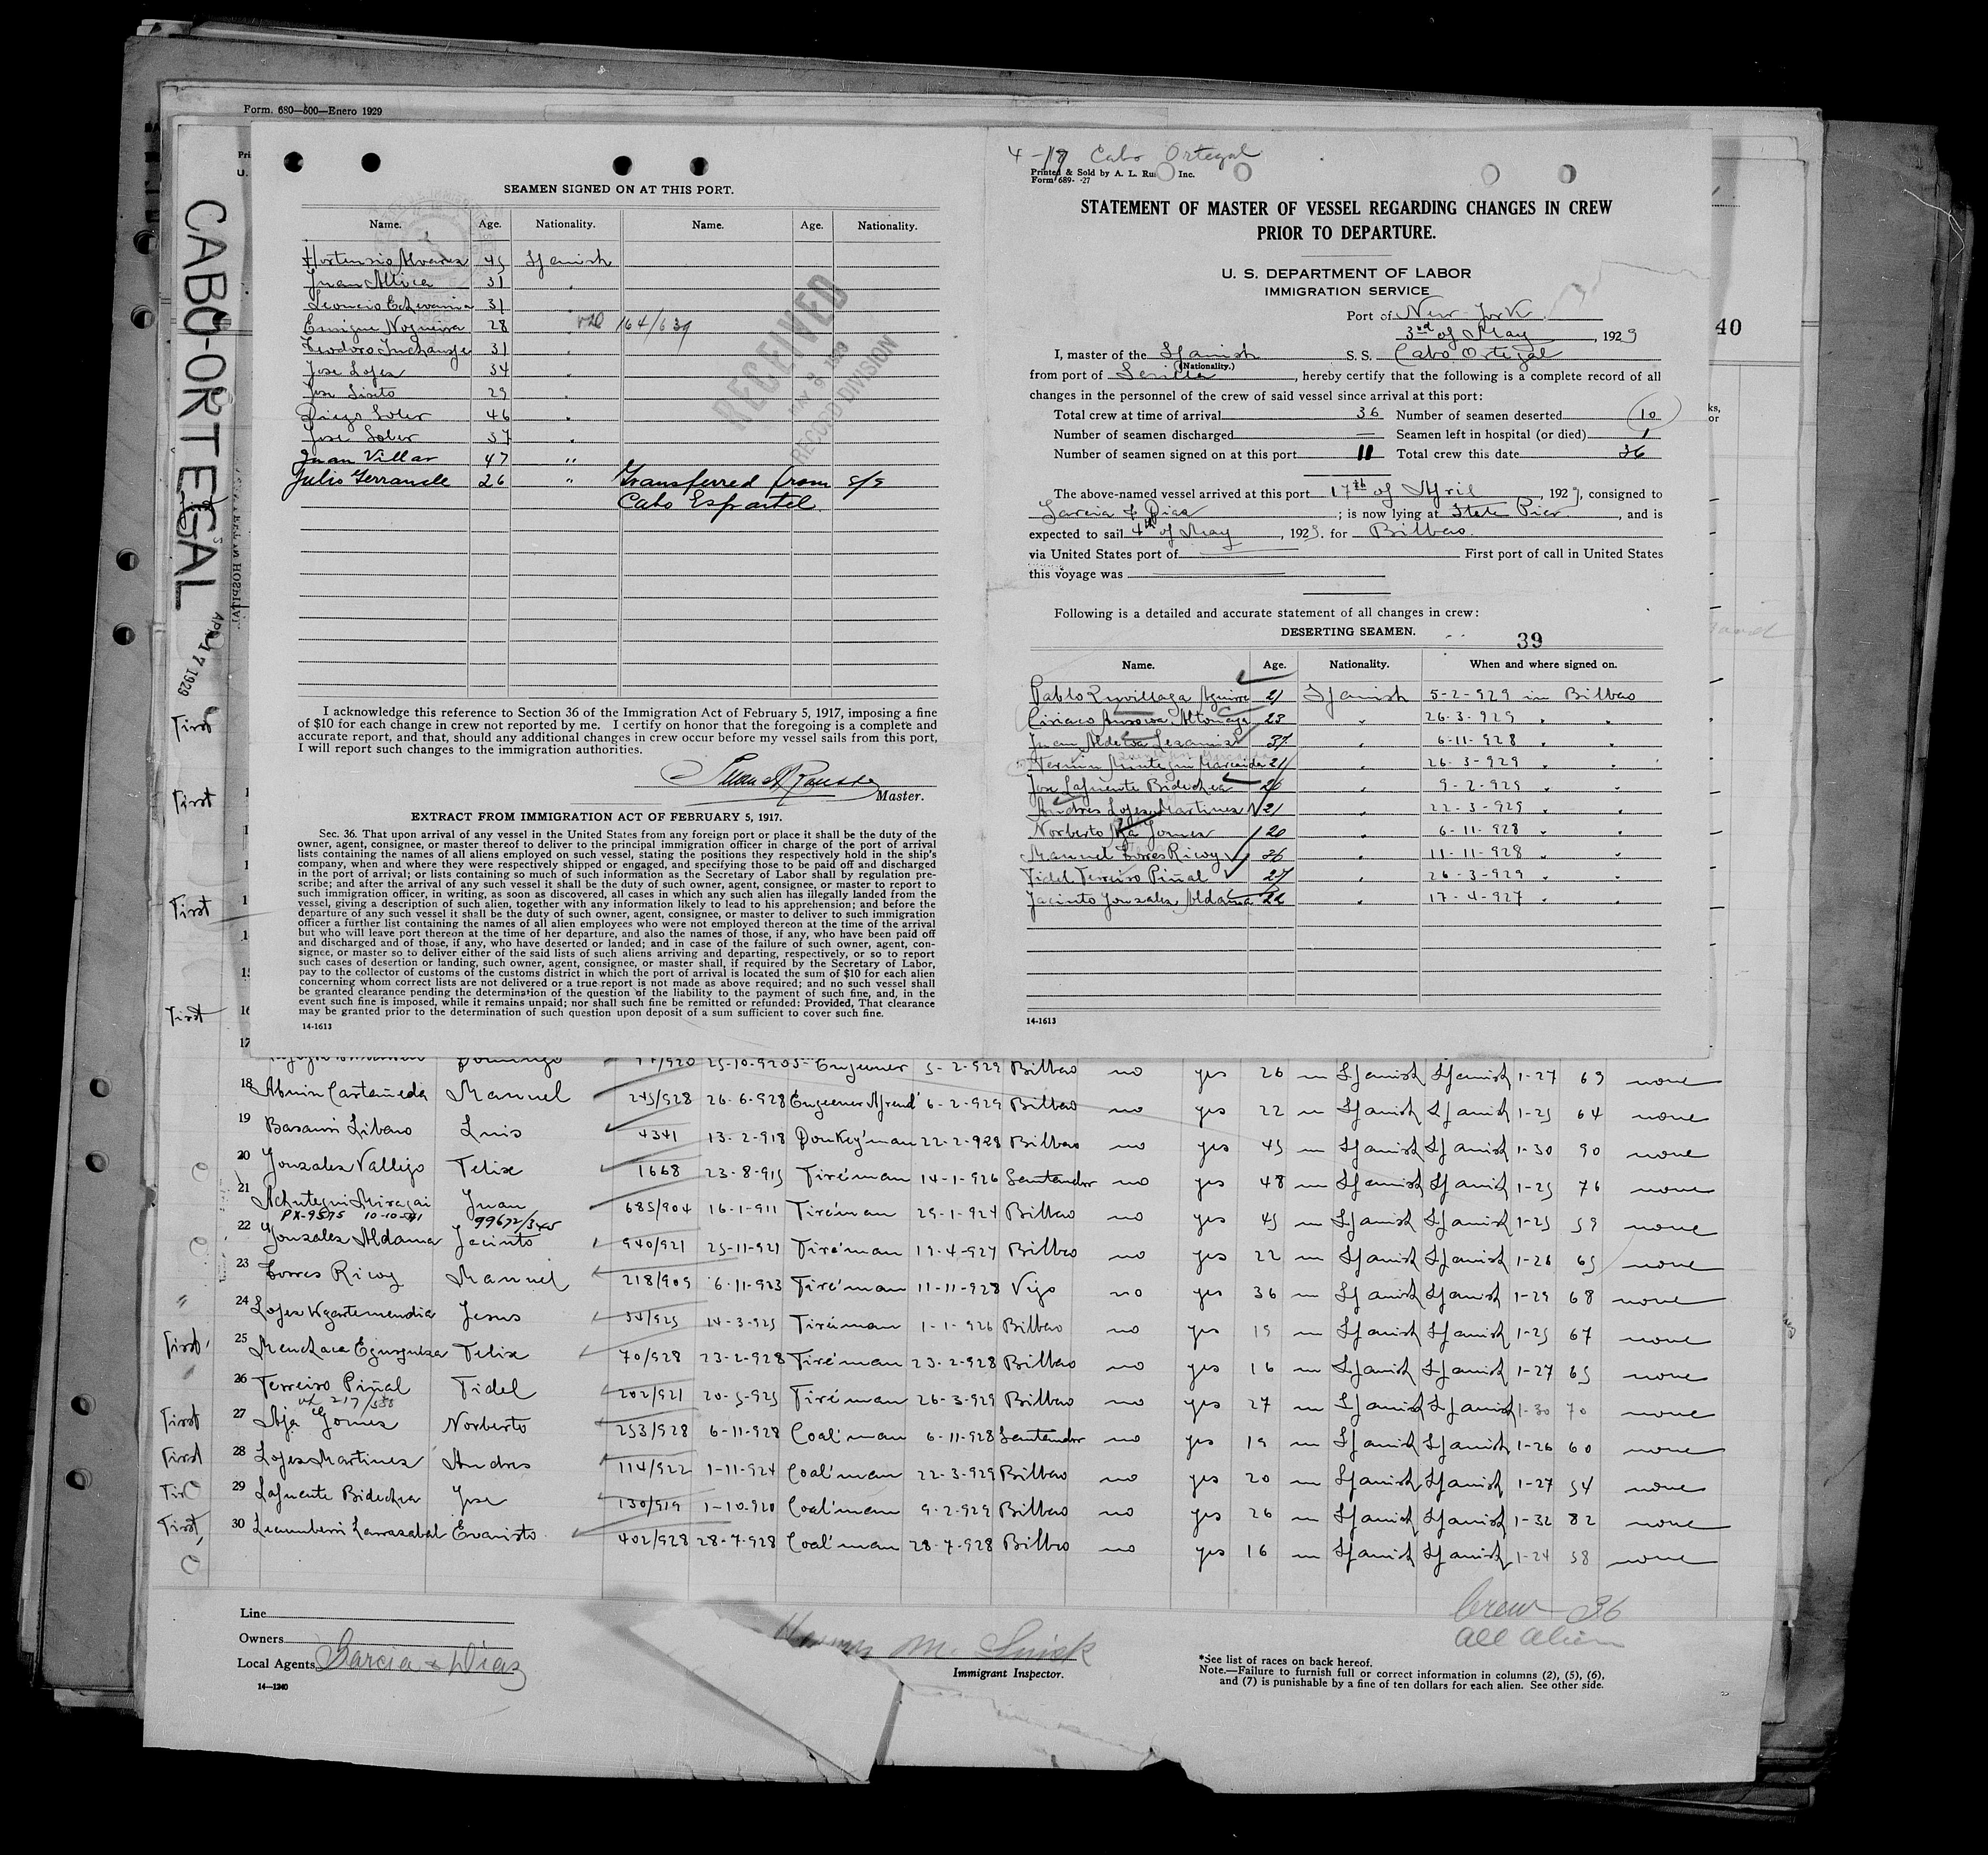 Form. 680—500—Enero 1929
CABO-ORTEGAL
APR 17 1929
SEAMEN SIGNED ON AT THIS PORT.
Name. Age. Nationality. Name. Age. Nationality.
Hortensio Alvarez 45 Spanish
Juan 31 "
Leoncio Echevarria 31
Enrique Nogueira 28 " 164/639
Teodoro 31 "
Jose Lopez 34 "
Jose 29
Diego Soler 46 "
Jose Soler 37 "
Juan Villar 47 "
Julio 26 " Transferred from s/s
Cabo Espartel.
RECEIVED
MAY 3 1929
RECORD DIVISION
I acknowledge this reference to Section 36 of the Immigration Act of February 5, 1917, imposing a fine
of $10 for each change in crew not reported by me. I certify on honor that the foregoing is a complete and
accurate report, and that, should any additional changes in crew occur before my vessel sails from this port,
I will report such changes to the immigration authorities.
Master.
EXTRACT FROM IMMIGRATION ACT OF FEBRUARY 5, 1917.
Sec. 36. That upon arrival of any vessel in the United States from any foreign port or place it shall be the duty of the
owner, agent, consignee, or master thereof to deliver to the principal immigration officer in charge of the port of arrival
lists containing the names of all aliens employed on such vessel, stating the positions they respectively hold in the ship's
company, when and where they were respectively shipped or engaged, and specifying those to be paid off and discharged
in the port of arrival; or lists containing so much of such information as the Secretary of Labor shall by regulation pre-
scribe; and after the arrival of any such vessel it shall be the duty of such owner, agent, consignee, or master to report to
such immigration officer, in writing, as soon as discovered, all cases in which any such alien has illegally landed from the
vessel, giving a description of such alien, together with any information likely to lead to his apprehension; and before the
departure of any such vessel it shall be the duty of such owner, agent, consignee, or master to deliver to such immigration
officer a further list containing the names of all alien employees who were not employed thereon at the time of the arrival
but who will leave port thereon at the time of her departure, and also the names of those, if any, who have been paid off
and discharged and of those, if any, who have deserted or landed; and in case of the failure of such owner, agent, con-
signee, or master so to deliver either of the said lists of such aliens arriving and departing, respectively, or so to report
such cases of desertion or landing, such owner, agent, consignee, or master shall, if required by the Secretary of Labor,
pay to the collector of customs of the customs district in which the port of arrival is located the sum of $10 for each alien
concerning whom correct lists are not delivered or a true report is not made as above required; and no such vessel shall
be granted clearance pending the determination of the question of the liability to the payment of such fine, and, in the
event such fine is imposed, while it remains unpaid; nor shall such fine be remitted or refunded: Provided, That clearance
may be granted prior to the determination of such question upon deposit of a sum sufficient to cover such fine.
14-1613
4-17 Cabo Ortegal
Printed & Sold by A. L. Inc.
Form 689- -27
STATEMENT OF MASTER OF VESSEL REGARDING CHANGES IN CREW
PRIOR TO DEPARTURE.
U. S. DEPARTMENT OF LABOR
IMMIGRATION SERVICE
Port of New York
3rd of May, 1929
I, master of the Spanish S. S. Cabo Ortegal
(Nationality.)
from port of Sevilla, hereby certify that the following is a complete record of all
changes in the personnel of the crew of said vessel since arrival at this port:
Total crew at time of arrival 36 Number of seamen deserted 10
Number of seamen discharged — Seamen left in hospital (or died) 1
Number of seamen signed on at this port 11 Total crew this date 36
The above-named vessel arrived at this port 17th of April, 1929, consigned to
Garcia & Diaz; is now lying at State Pier, and is
expected to sail 4th of May, 1929. for Bilbao.
via United States port of First port of call in United States
this voyage was
Following is a detailed and accurate statement of all changes in crew:
DESERTING SEAMEN.
39
Name. Age. Nationality. When and where signed on.
Pablo Aguirre 21 Spanish 5-2-929 in Bilbao
Ciriaco 23 " 26-3-929 " "
Juan 37 " 6-11-928 " "
Fermin 21 " 26-3-929 " "
Jose Lafuente Bidechea 26 " 9-2-929 " "
Andres Lopez Martinez 21 " 22-3-929 " "
Norberto Aja Gomez 20 " 6-11-928 " "
Manuel Torres Rivoy 36 " 11-11-928 " "
Fidel Ferreiro Piñal 27 " 26-3-929 " "
Jacinto Gonzalez Aldama 22 " 17-4-927 " "
14-1613
40
First
First
First
First
17 Domingo 25-10-920 Engineer 5-2-929 Bilbao no yes 26 m Spanish Spanish 1-27 69 none
18 Castañeda Manuel 245/928 26-6-928 6-2-929 Bilbao no yes 22 m Spanish Spanish 1-25 64 none
19 Luis 4341 13-2-918 Donkey'man 22-2-928 Bilbao no yes 45 m Spanish Spanish 1-30 90 none
20 Gonzalez Vallejo Felix 1668 23-8-915 Fire'man 14-1-926 Santander no yes 48 m Spanish Spanish 1-25 76 none
21 Achutegui Juan 685/904 16-1-911 Fire'man 29-1-924 Bilbao no yes 45 m Spanish Spanish 1-25 59 none
22 Gonzalez Aldama Jacinto 940/921 25-11-921 Fire'man 19-4-927 Bilbao no yes 22 m Spanish Spanish 1-26 65 none
23 Torres Rivoy Manuel 218/909 6-11-923 Fire'man 11-11-928 Vigo no yes 36 m Spanish Spanish 1-29 68 none
24 Lopez Jesus 34/925 14-3-925 Fire'man 1-1-926 Bilbao no yes 19 m Spanish Spanish 1-25 67 none
First 25 Menchaca Felix 70/928 23-2-928 Fire'man 23-2-928 Bilbao no yes 16 m Spanish Spanish 1-27 65 none
26 Ferreiro Piñal Fidel 202/921 20-5-925 Fire'man 26-3-929 Bilbao no yes 27 m Spanish Spanish 1-30 70 none
First 27 Aja Gomez Norberto 253/928 6-11-928 Coal'man 6-11-928 Santander no yes 19 m Spanish Spanish 1-26 60 none
First 28 Lopez Martinez Andres 114/922 1-11-924 Coal'man 22-3-929 Bilbao no yes 20 m Spanish Spanish 1-27 54 none
29 Lafuente Bidechea Jose 130/919 1-10-920 Coal'man 9-2-929 Bilbao no yes 26 m Spanish Spanish 1-32 82 none
First 30 Lecumberri Larrazabal Evaristo 402/928 28-7-928 Coal'man 28-7-928 Bilbao no yes 16 m Spanish Spanish 1-24 58 none
Crew 36
All Alien
Line
Owners
Local Agents Garcia & Diaz
14—1240
Immigrant Inspector.
*See list of races on back hereof.
Note.—Failure to furnish full or correct information in columns (2), (5), (6),
and (7) is punishable by a fine of ten dollars for each alien. See other side.